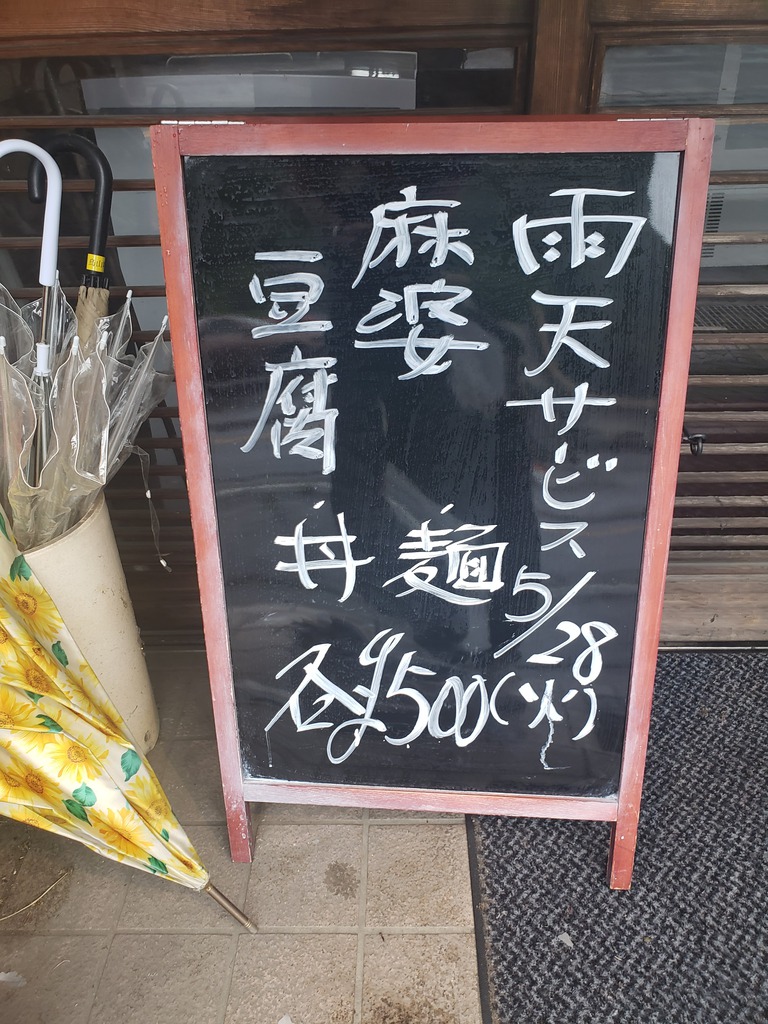 雨天サービス 5/28(火)
麻婆
豆腐
・麺
・丼
各¥500